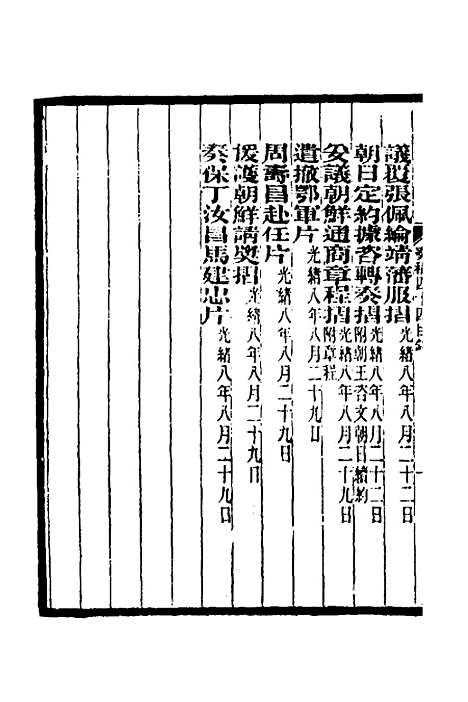 議覆張佩綸靖藩服摺 光緒八年八月二十二日
朝日定約據咨轉奏摺 光緒八年八月二十二日 附朝王咨文朝日續約
妥議朝鮮通商章程摺 光緒八年八月二十九日 附章程
遣撤鄂軍片 光緒八年八月二十九日
周壽昌赴任片 光緒八年八月二十九日
援護朝鮮請奬摺 光緒八年八月二十九日
奏保丁汝昌馬建忠片 光緒八年八月二十九日